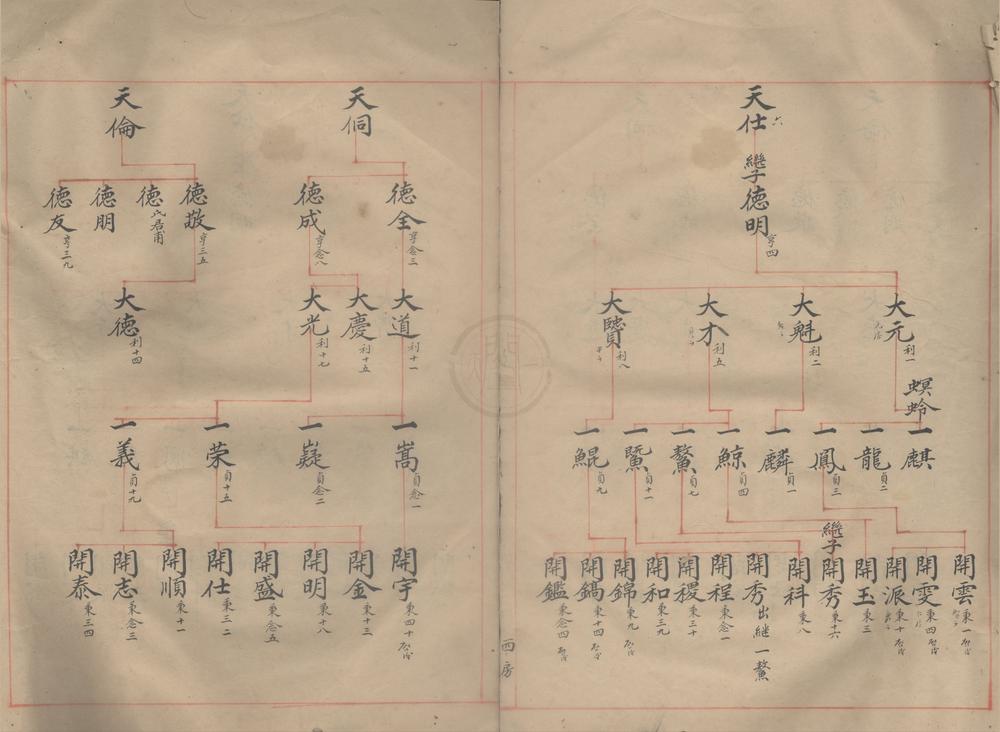 天仕 六
繼子 德明 亨四
大元 利一
大魁 利二
大才 利五
大贒 利八
螟蛉
一麒
一龍 貞二
一鳳 貞三
一麟 貞一
一鯨 貞四
一鰲 貞七
一鱉 貞十一
一鯤 貞九
開雲 秉一
開雯 秉四
開派 秉十
開玉 秉三
繼子 開秀 秉十六
開科 秉八
開秀 出継一鰲
開程 秉念一
開稷 秉三十
開和 秉三九
開錦 秉九
開鎬 秉十四
開鑑 秉念四
西房
天侗
德全 亨念三
德成 亨念八
大道 利十一
大慶 利十五
大光 利十七
一嵩 貞念一
一嶷 貞念二
開宇 秉四十
一荣 貞十五
一義 貞十九
開金 秉十三
開明 秉十八
開盛 秉念五
開仕 秉三二
開順 秉十一
開志 秉念三
開泰 秉三四
天倫
德敬 亨三五
德
德朋
德友 亨三九
大德 利十四